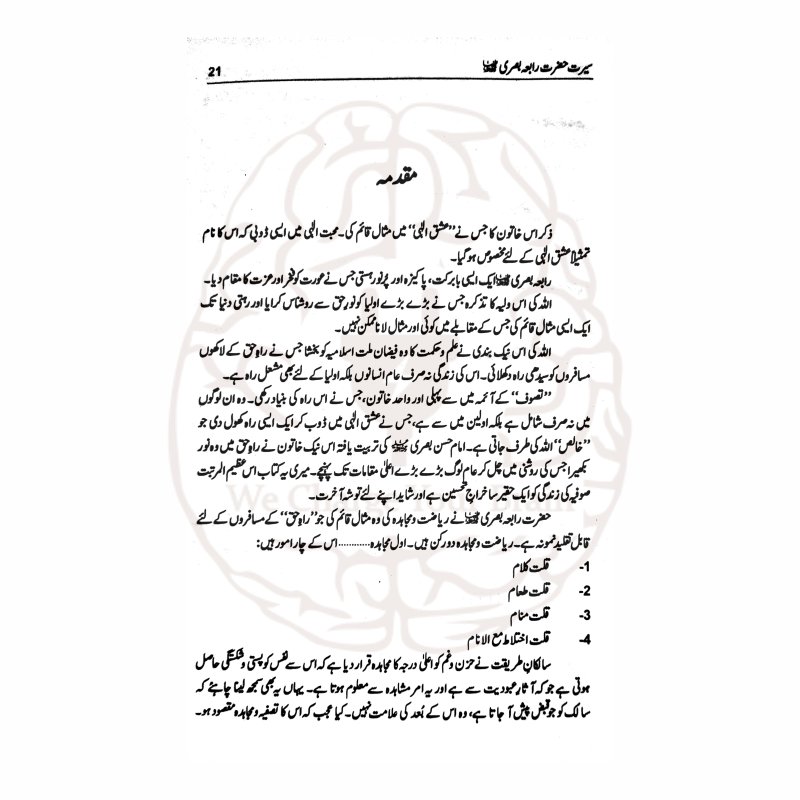 سیرت حضرت رابعہ بصری
21
مقدمہ
ذکر اس خاتون کا جس نے ”عشق الٰہی“ میں مثال قائم کی۔ محبت الٰہی میں ایسی ڈوبی کہ اس کا نام
تمثیلاً عشق الٰہی کے لئے مخصوص ہو گیا۔
رابعہ بصری ایک ایسی بابرکت، پاکیزہ اور پرنور ہستی جس نے عورت کو فخر اور عزت کا مقام دیا۔
اللہ کی اس ولیہ کا تذکرہ جس نے بڑے بڑے اولیا کو نورِ حق سے روشناس کرایا اور رہتی دنیا تک
ایک ایسی مثال قائم کی جس کے مقابلے میں کوئی اور مثال لانا ممکن نہیں۔
اللہ کی اس نیک بندی نے علم و حکمت کا وہ فیضان ملت اسلامیہ کو بخشا جس نے راہِ حق کے لاکھوں
مسافروں کو سیدھی راہ دکھلائی۔ اس کی زندگی نہ صرف عام انسانوں بلکہ اولیا کے لئے بھی مشعل راہ ہے۔
”تصوف“ کے آئمہ میں سے پہلی اور واحد خاتون، جس نے اس راہ کی بنیاد رکھی۔ وہ ان لوگوں
میں نہ صرف شامل ہے بلکہ اولین میں سے ہے، جس نے عشق الٰہی میں ڈوب کر ایک ایسی راہ کھول دی جو
”خالص“ اللہ کی طرف جاتی ہے۔ امام حسن بصری کی تربیت یافتہ اس نیک خاتون نے راہِ حق میں وہ نور
بکھیرا جس کی روشنی میں چل کر عام لوگ بڑے بڑے اعلیٰ مقامات تک پہنچے۔ میری یہ کتاب اس عظیم المرتبت
صوفیہ کی زندگی کو ایک حقیر سا خراجِ تحسین ہے اور شاید اپنے لئے توشہ آخرت۔
We Change Your Brain
حضرت رابعہ بصری نے ریاضت و مجاہدہ کی وہ مثال قائم کی جو ”راہِ حق“ کے مسافروں کے لئے
قابل تقلید نمونہ ہے۔ ریاضت و مجاہدہ دو رکن ہیں۔ اول مجاہدہ............ اس کے چار امور ہیں:
1- قلت کلام
2- قلت طعام
3- قلت منام
4- قلت اختلاط مع الانام
سالکانِ طریقت نے حزن و غم کو اعلیٰ درجہ کا مجاہدہ قرار دیا ہے کہ اس سے نفس کو پستی و شکستگی حاصل
ہوتی ہے جو کہ آثارِ عبودیت سے ہے اور یہ امر مشاہدہ سے معلوم ہوتا ہے۔ یہاں یہ بھی سمجھ لینا چاہئے کہ
سالک کو جو قبض پیش آ جاتا ہے، وہ اس کے بُعد کی علامت نہیں۔ کیا عجب کہ اس کا تصفیہ و مجاہدہ مقصود ہو۔